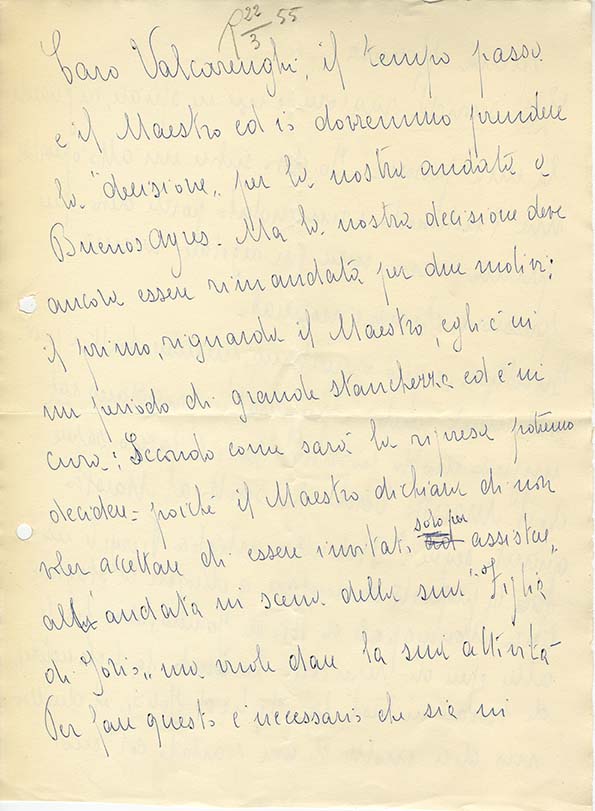 R 22/3 55
Caro Valcarenghi, il tempo passa
e il Maestro ed io dovremmo prendere
la "decisione" per la nostra andata a
Buenos Ayres. Ma la nostra decisione deve
ancora essere rimandata per due motivi;
il primo, riguarda il Maestro, egli è in
un periodo di grande stanchezza ed è in
cura; Secondo come sarà la ripresa potremo
decidere = poiché il Maestro dichiara di non
voler accettare di essere invitato solo per assistere
all'andata in scena della sua "Figlia
di Jorio" ma vuole dare la sua attività
Per fare questo è necessario che sia in